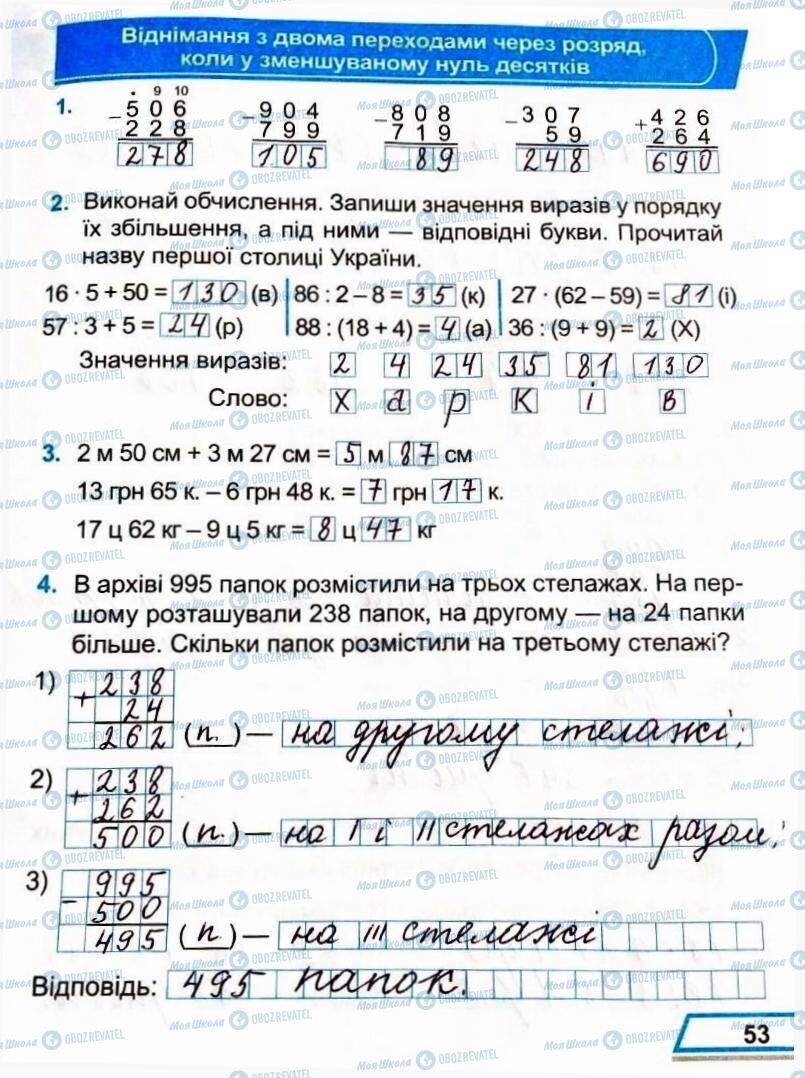 Віднімання з двома переходами через розряд,
коли у зменшуваному нуль десятків
• 9 10
1. - 506 - 904 - 808 - 307 + 426
228 799 719 59 264
278 105 89 248 690
2. Виконай обчислення. Запиши значення виразів у порядку
їх збільшення, а під ними — відповідні букви. Прочитай
назву першої столиці України.
16 · 5 + 50 = 130 (в) 86 : 2 – 8 = 35 (к) 27 · (62 – 59) = 81 (і)
57 : 3 + 5 = 24 (р) 88 : (18 + 4) = 4 (а) 36 : (9 + 9) = 2 (Х)
Значення виразів: 2 4 24 35 81 130
Слово: Х а р к і в
3. 2 м 50 см + 3 м 27 см = 5 м 87 см
13 грн 65 к. – 6 грн 48 к. = 7 грн 17 к.
17 ц 62 кг – 9 ц 5 кг = 8 ц 47 кг
4. В архіві 995 папок розмістили на трьох стелажах. На пер-
шому розташували 238 папок, на другому — на 24 папки
більше. Скільки папок розмістили на третьому стелажі?
1) + 238
24
262 (п.) — на другому стелажі;
2) + 238
262
500 (п.) — на І і ІІ стелажах разом;
3) - 995
500
495 (п.) — на ІІІ стелажі
Відповідь: 495 папок.
53